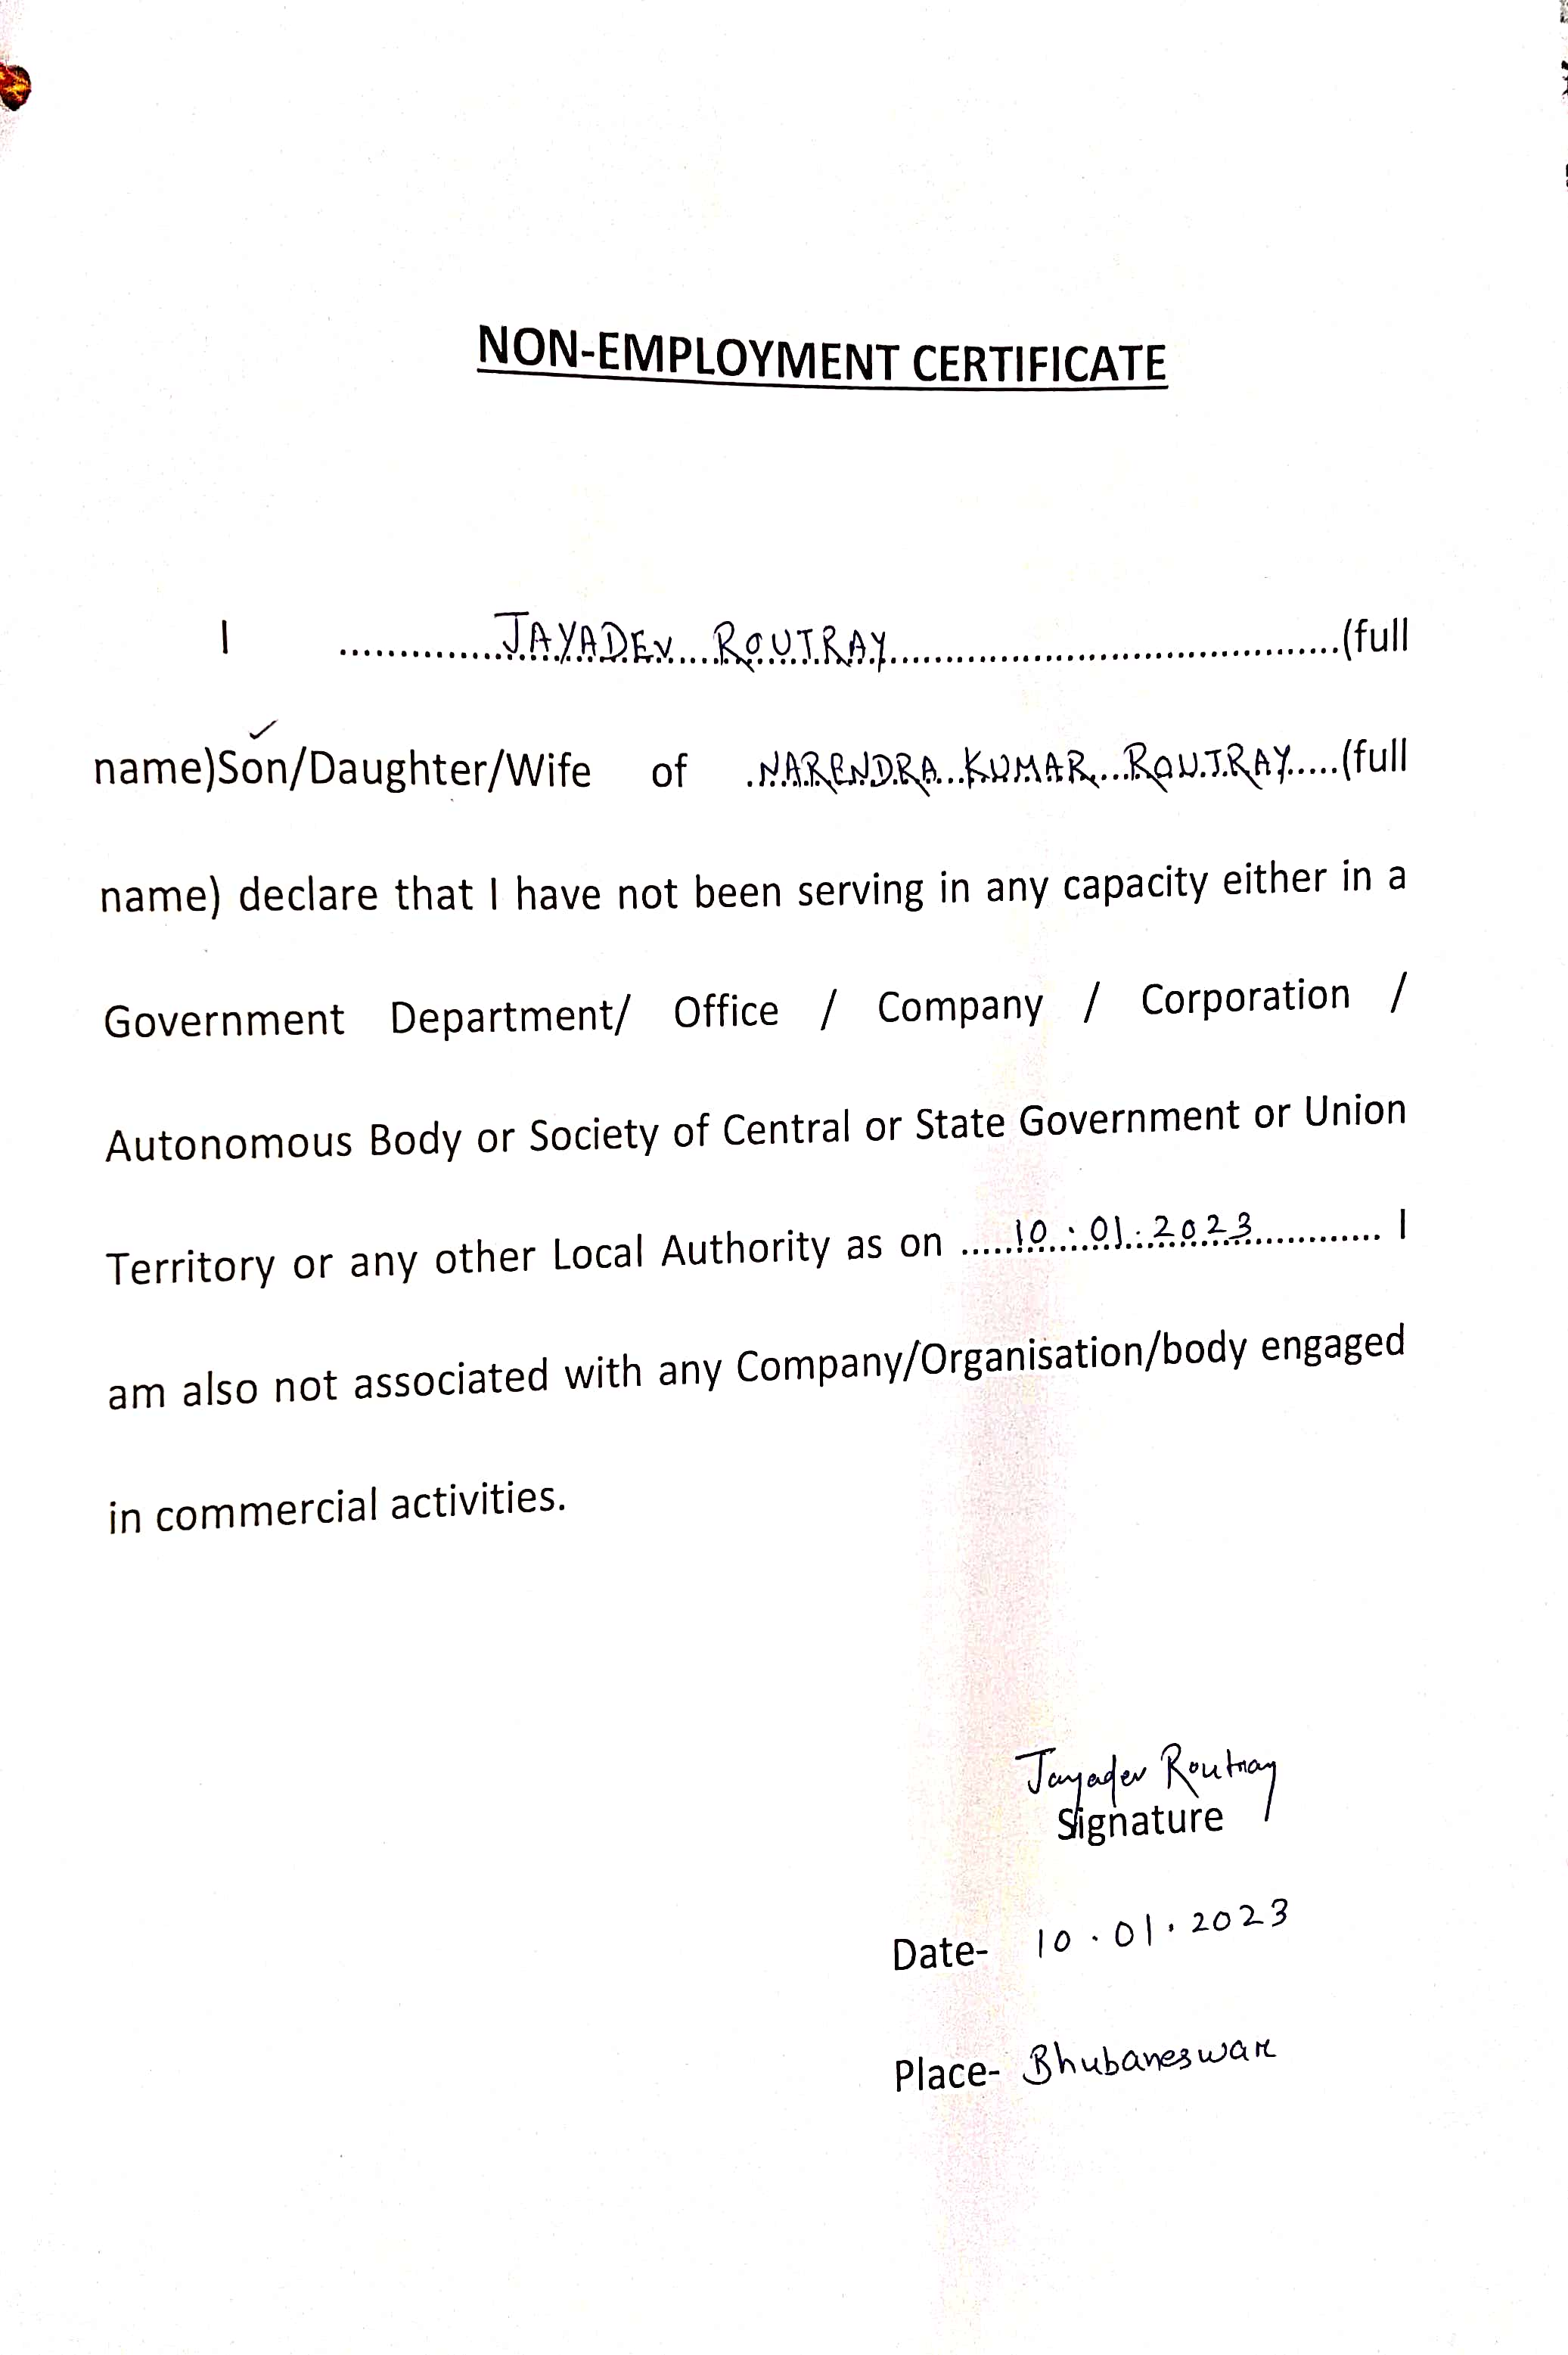 NON-EMPLOYMENT CERTIFICATE
I ..............JAYADEV ROUTRAY......................................(full
name)Son/Daughter/Wife of .NARENDRA KUMAR ROUTRAY.....(full
name) declare that I have not been serving in any capacity either in a
Government Department/ Office / Company / Corporation /
Autonomous Body or Society of Central or State Government or Union
Territory or any other Local Authority as on .....10.01.2023............ I
am also not associated with any Company/Organisation/body engaged
in commercial activities.
Jayadev Routray
Signature
Date- 10.01.2023
Place- Bhubaneswar